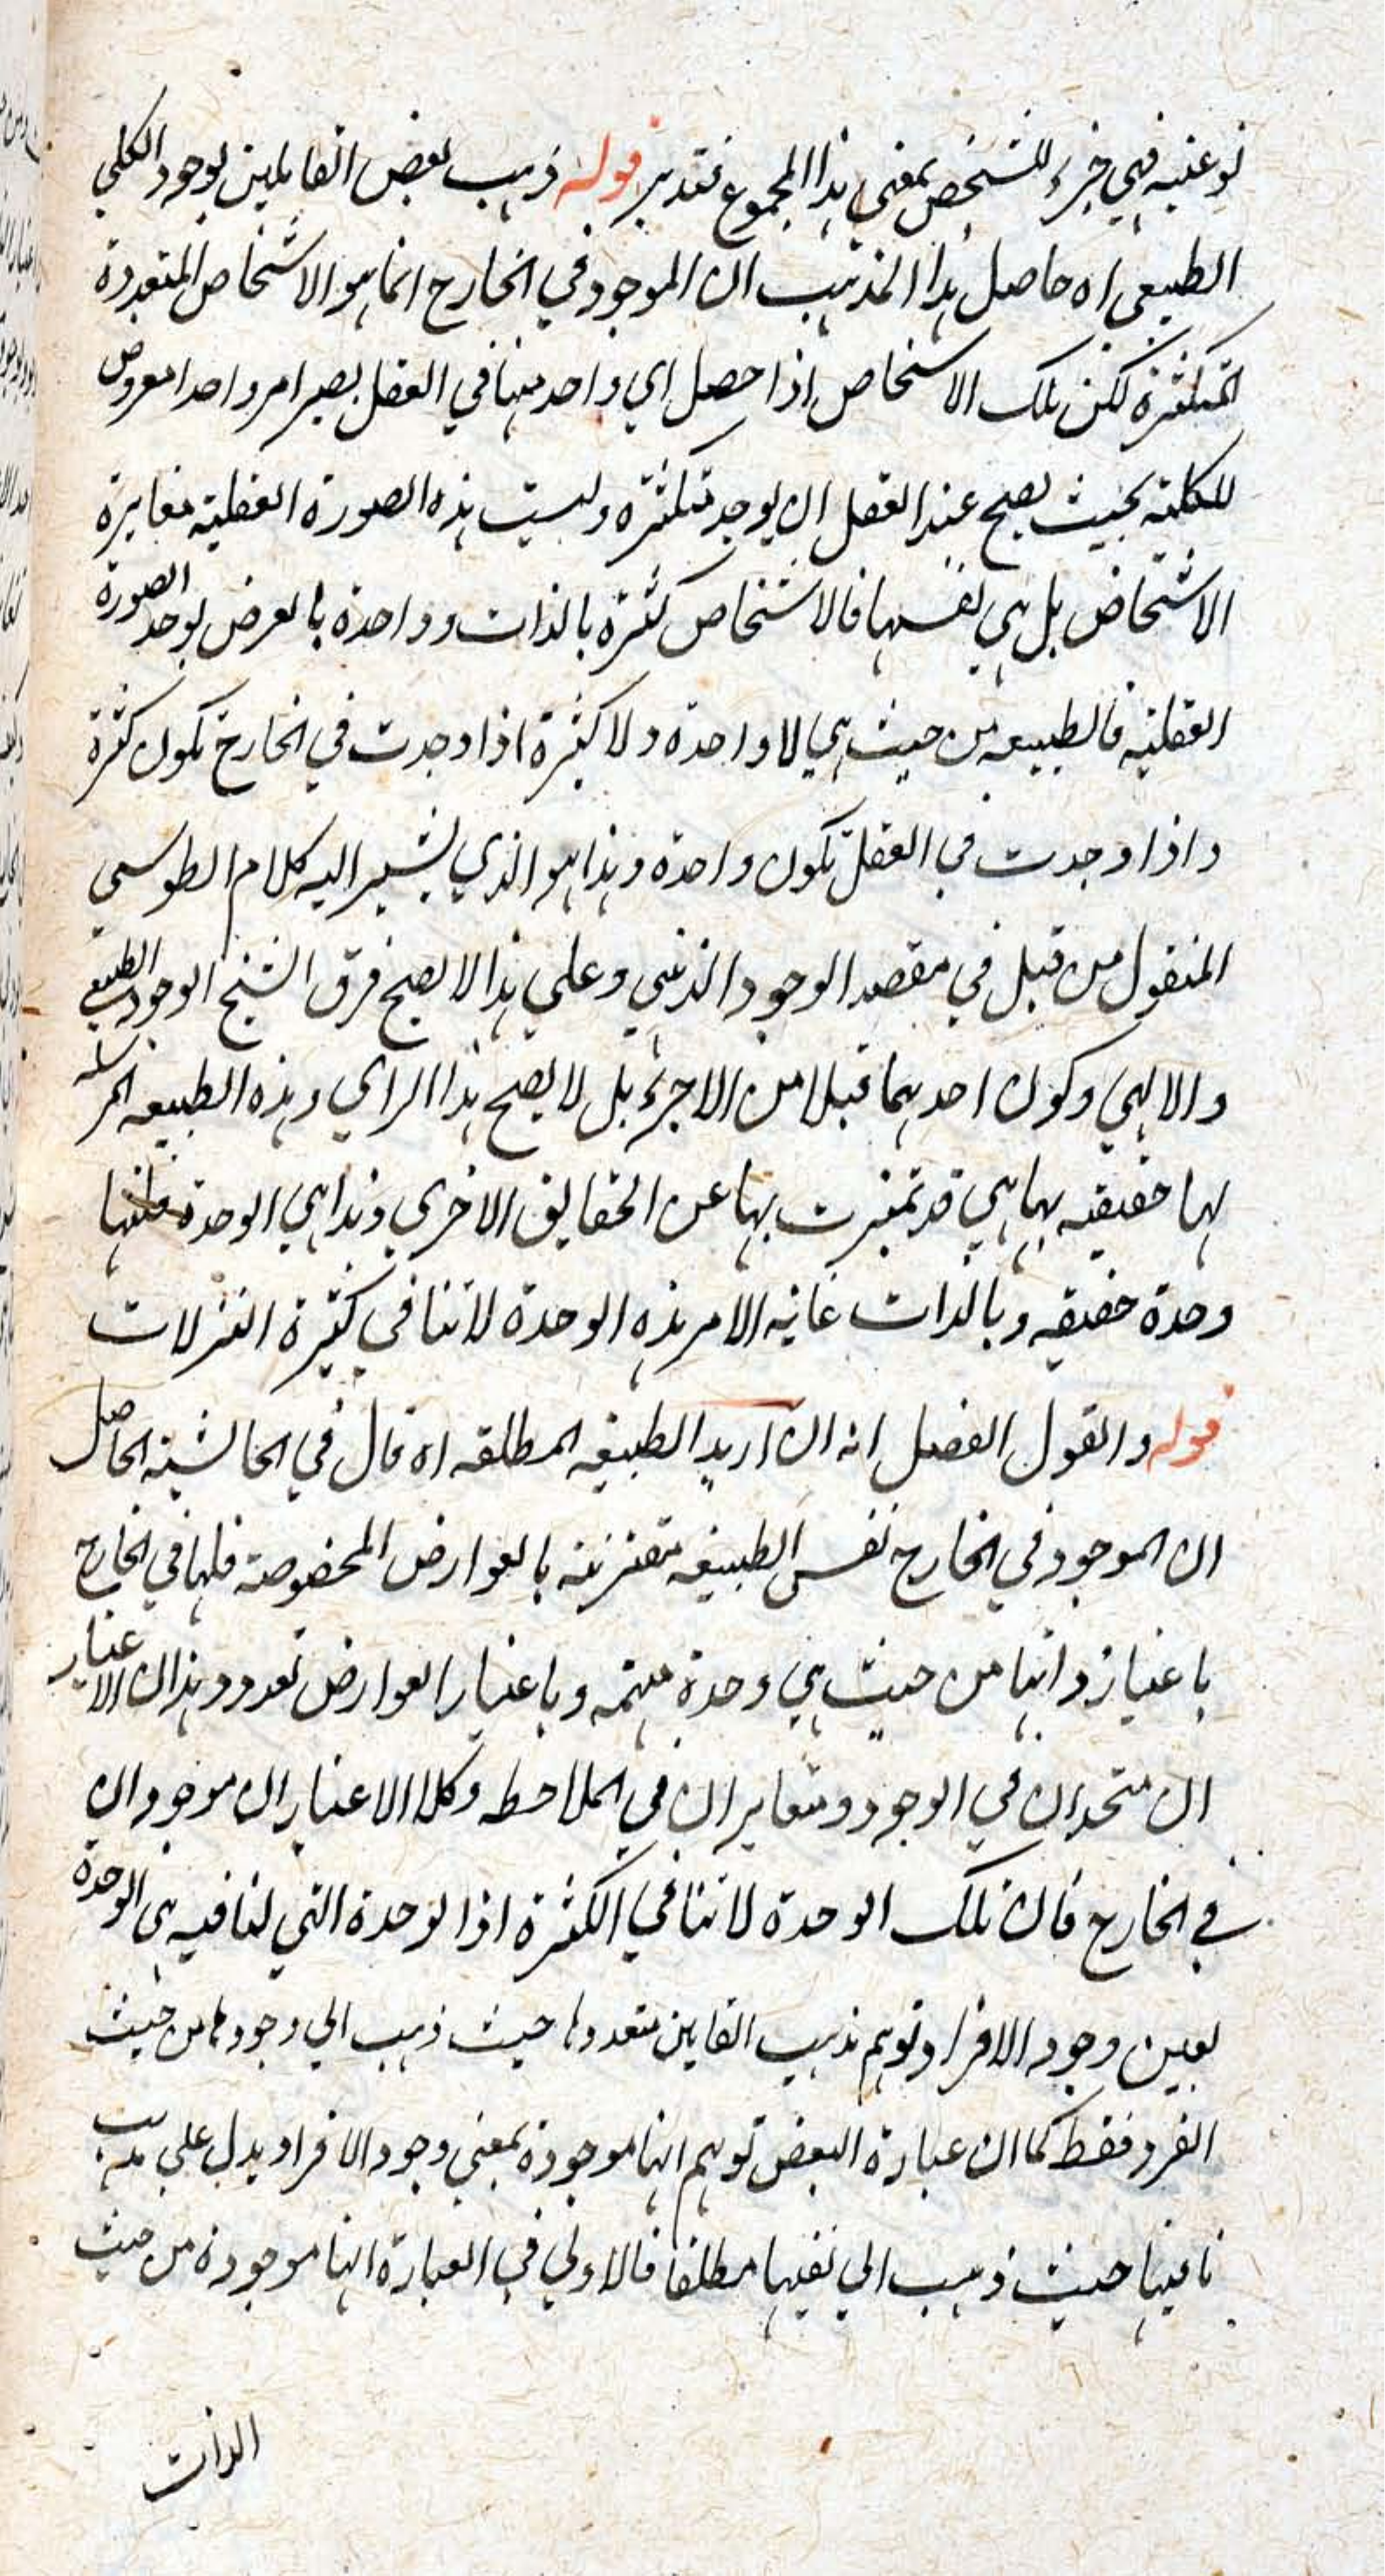 نوعيه فهي جزء للشخص بمعني هذا المجموع فتدبر قوله ذهب بعض القايلين بوجود الكلي
الطبيعي اه حاصل هذا المذهب ان الموجود في الخارج انما هو الاشخاص المتعددة
المتكثرة لكن تلك الاشخاص اذا حصل اي واحد منها في العقل يصير امر واحدا معروض
للكلية بحيث يصح عند العقل ان يوجد متكثرة وليست هذه الصورة العقلية مغايرة
الاشخاص بل هي نفسها فالاشخاص كثرة بالذات وواحدة بالعرض لوحد الصورة
العقلية فالطبيعه من حيث هي لا واحدة ولا كثيرة اذا وجدت في الخارج تكون كثرة
واذا وجدت في العقل تكون واحدة وهذا هو الذي يشير اليه كلام الطوسي
المنقول من قبل في مقصد الوجود الذهني وعلي هذا لا يصح فرق الشيخ الوجود الطبيعي
والالهي وكون احدهما قبلا من الاجزء بل لا يصح هذا الراي وهذه الطبيعه المرسله
لها حقيقه بها هي قد تميزت بها عن الحقايق الاخري وهذا هي الوحدة فلها
وحدة حقيقه وبالذات غايه الامر هذه الوحدة لا تنافي كثيرة التنزلات
قوله والقول الفصل انه ان اريد الطبيعه المطلقه اه قال في الحاشية الحاصل
ان الموجود في الخارج نفس الطبيعه مقترنة بالعوارض المخصوصة فلها في الخارج
باعتبار ذاتها من حيث هي وحدة مبهمه وباعتبار العوارض تعدد وهذان الاعتبار
ان متحدان في الوجود ومتغايران في الملاحظه وكلا الاعتباران موجودان
في الخارج فان تلك الوحدة لا تنافي الكثرة اذا لوحدة التي تنافيه هي الوحدة
بعين وجود الافراد توهم مذهب القاين متعددها حيث ذهب الي وجودها من حيث
الفرد فقط كما ان عبارة البعض توهم انها موجودة بمعني وجود الافراد يدل علي مذهب
نافيها حيث ذهب الي نفيها مطلقا فالاولي في العبارة انها موجودة من حيث
الذات